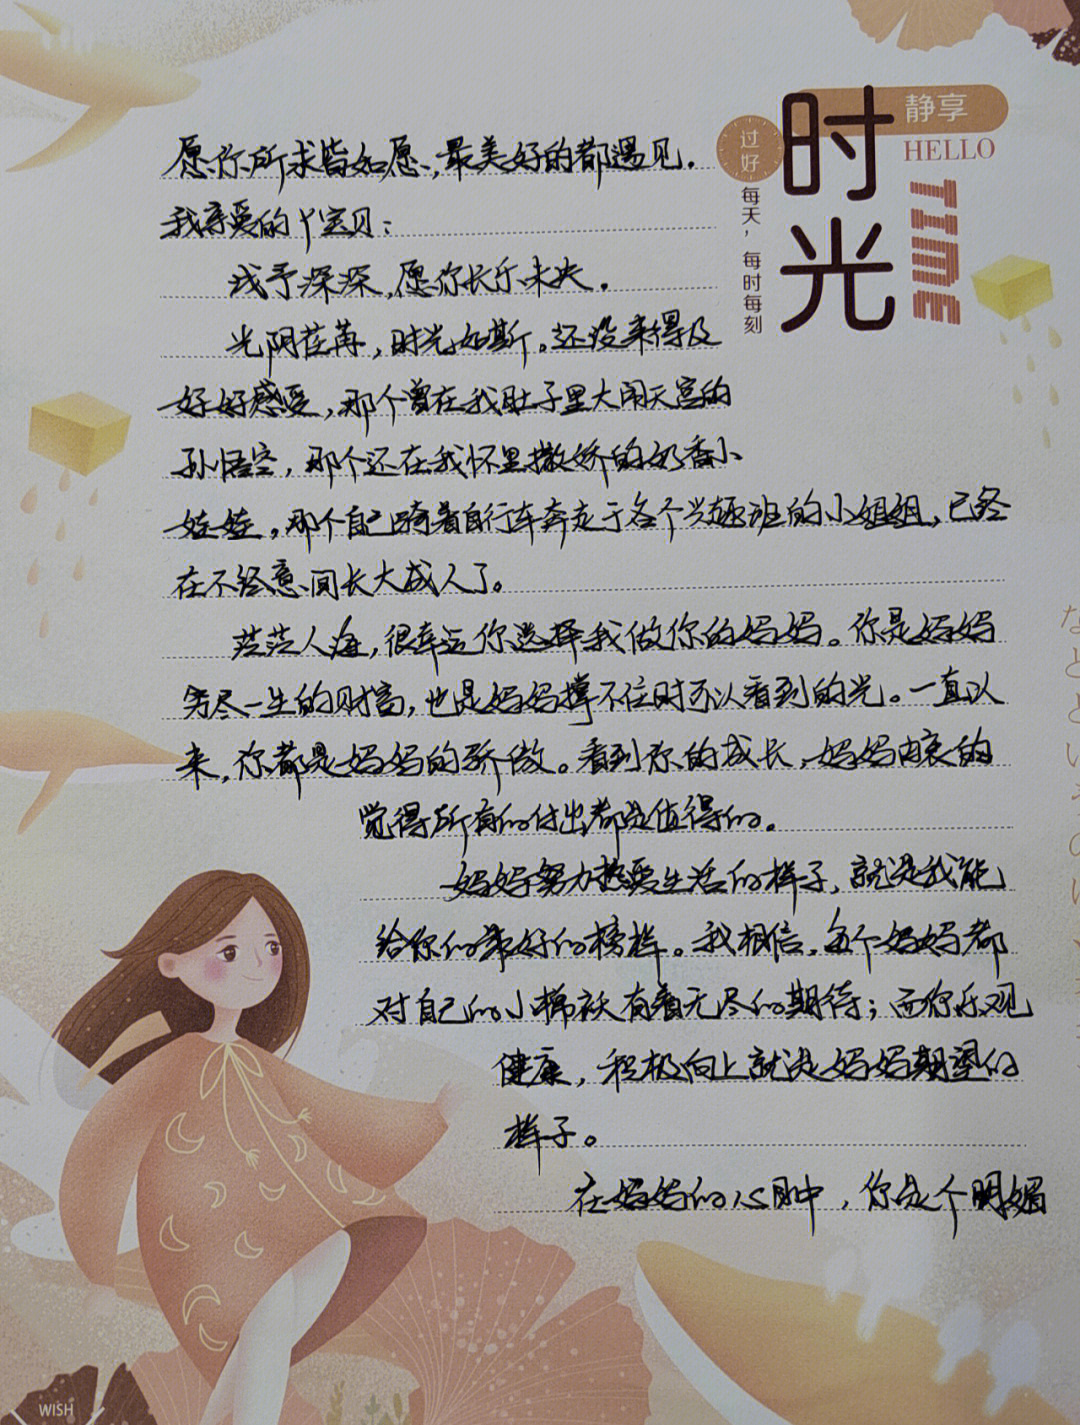 静享
时光
HELLO
TIME
过好
每天，每时每刻
愿你所求皆如愿，最美好的都遇见.
我亲爱的丫宝贝：
浅予深深，愿你长乐未央.
光阴荏苒，时光如斯。还没来得及
好好感受，那个曾在我肚子里大闹天宫的
孙悟空，那个还在我怀里撒娇的奶香小
娃娃，那个自己骑着自行车奔走于各个兴趣班的小姐姐，已经
在不经意间长大成人了。
茫茫人海，很幸运你选择我做你的妈妈。你是妈妈
穷尽一生的财富，也是妈妈撑不住时可以看到的光。一直以
来，你都是妈妈的骄傲。看到你的成长，妈妈由衷的
觉得所有的付出都是值得的。
妈妈努力热爱生活的样子，就是我能
给你的最好的榜样。我相信，每个妈妈都
对自己的小棉袄有着无尽的期待；而你乐观
健康，积极向上就是妈妈期望的
样子。
在妈妈的心目中，你是个明媚
WISH